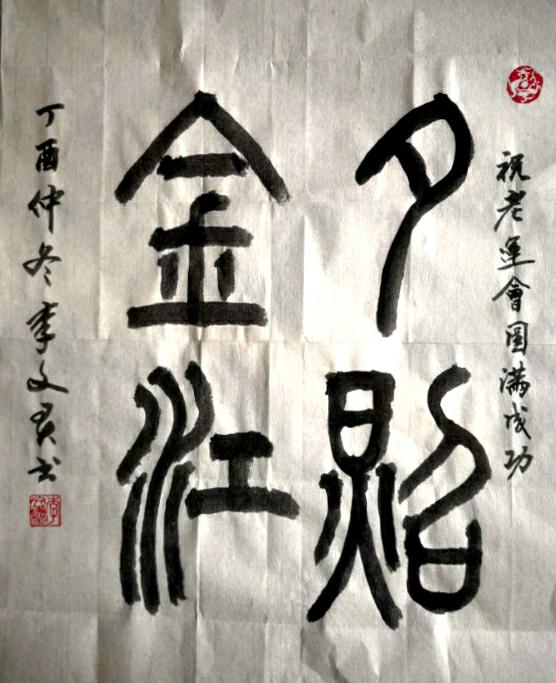 祝老運會圓滿成功
夕照
金江
丁酉仲冬李文君书